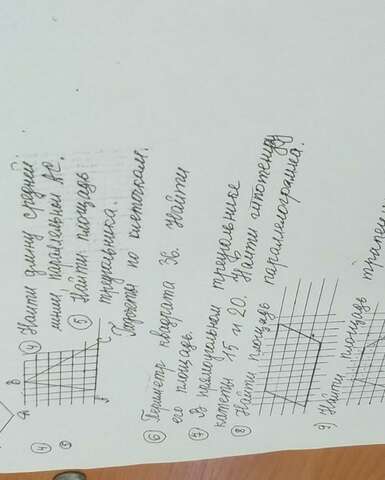 ④ ④ Найти длину средней
линии параллельной АС.
⑤ ⑤ Найти площадь
треугольника.
по клеточкам.
⑥ Периметр квадрата 36. Найти
его площадь.
⑦ В прямоугольном треугольнике
катеты 15 и 20. Найти гипотенузу
⑧ Найти площадь параллелограмма.
9) Найти площадь
B
C